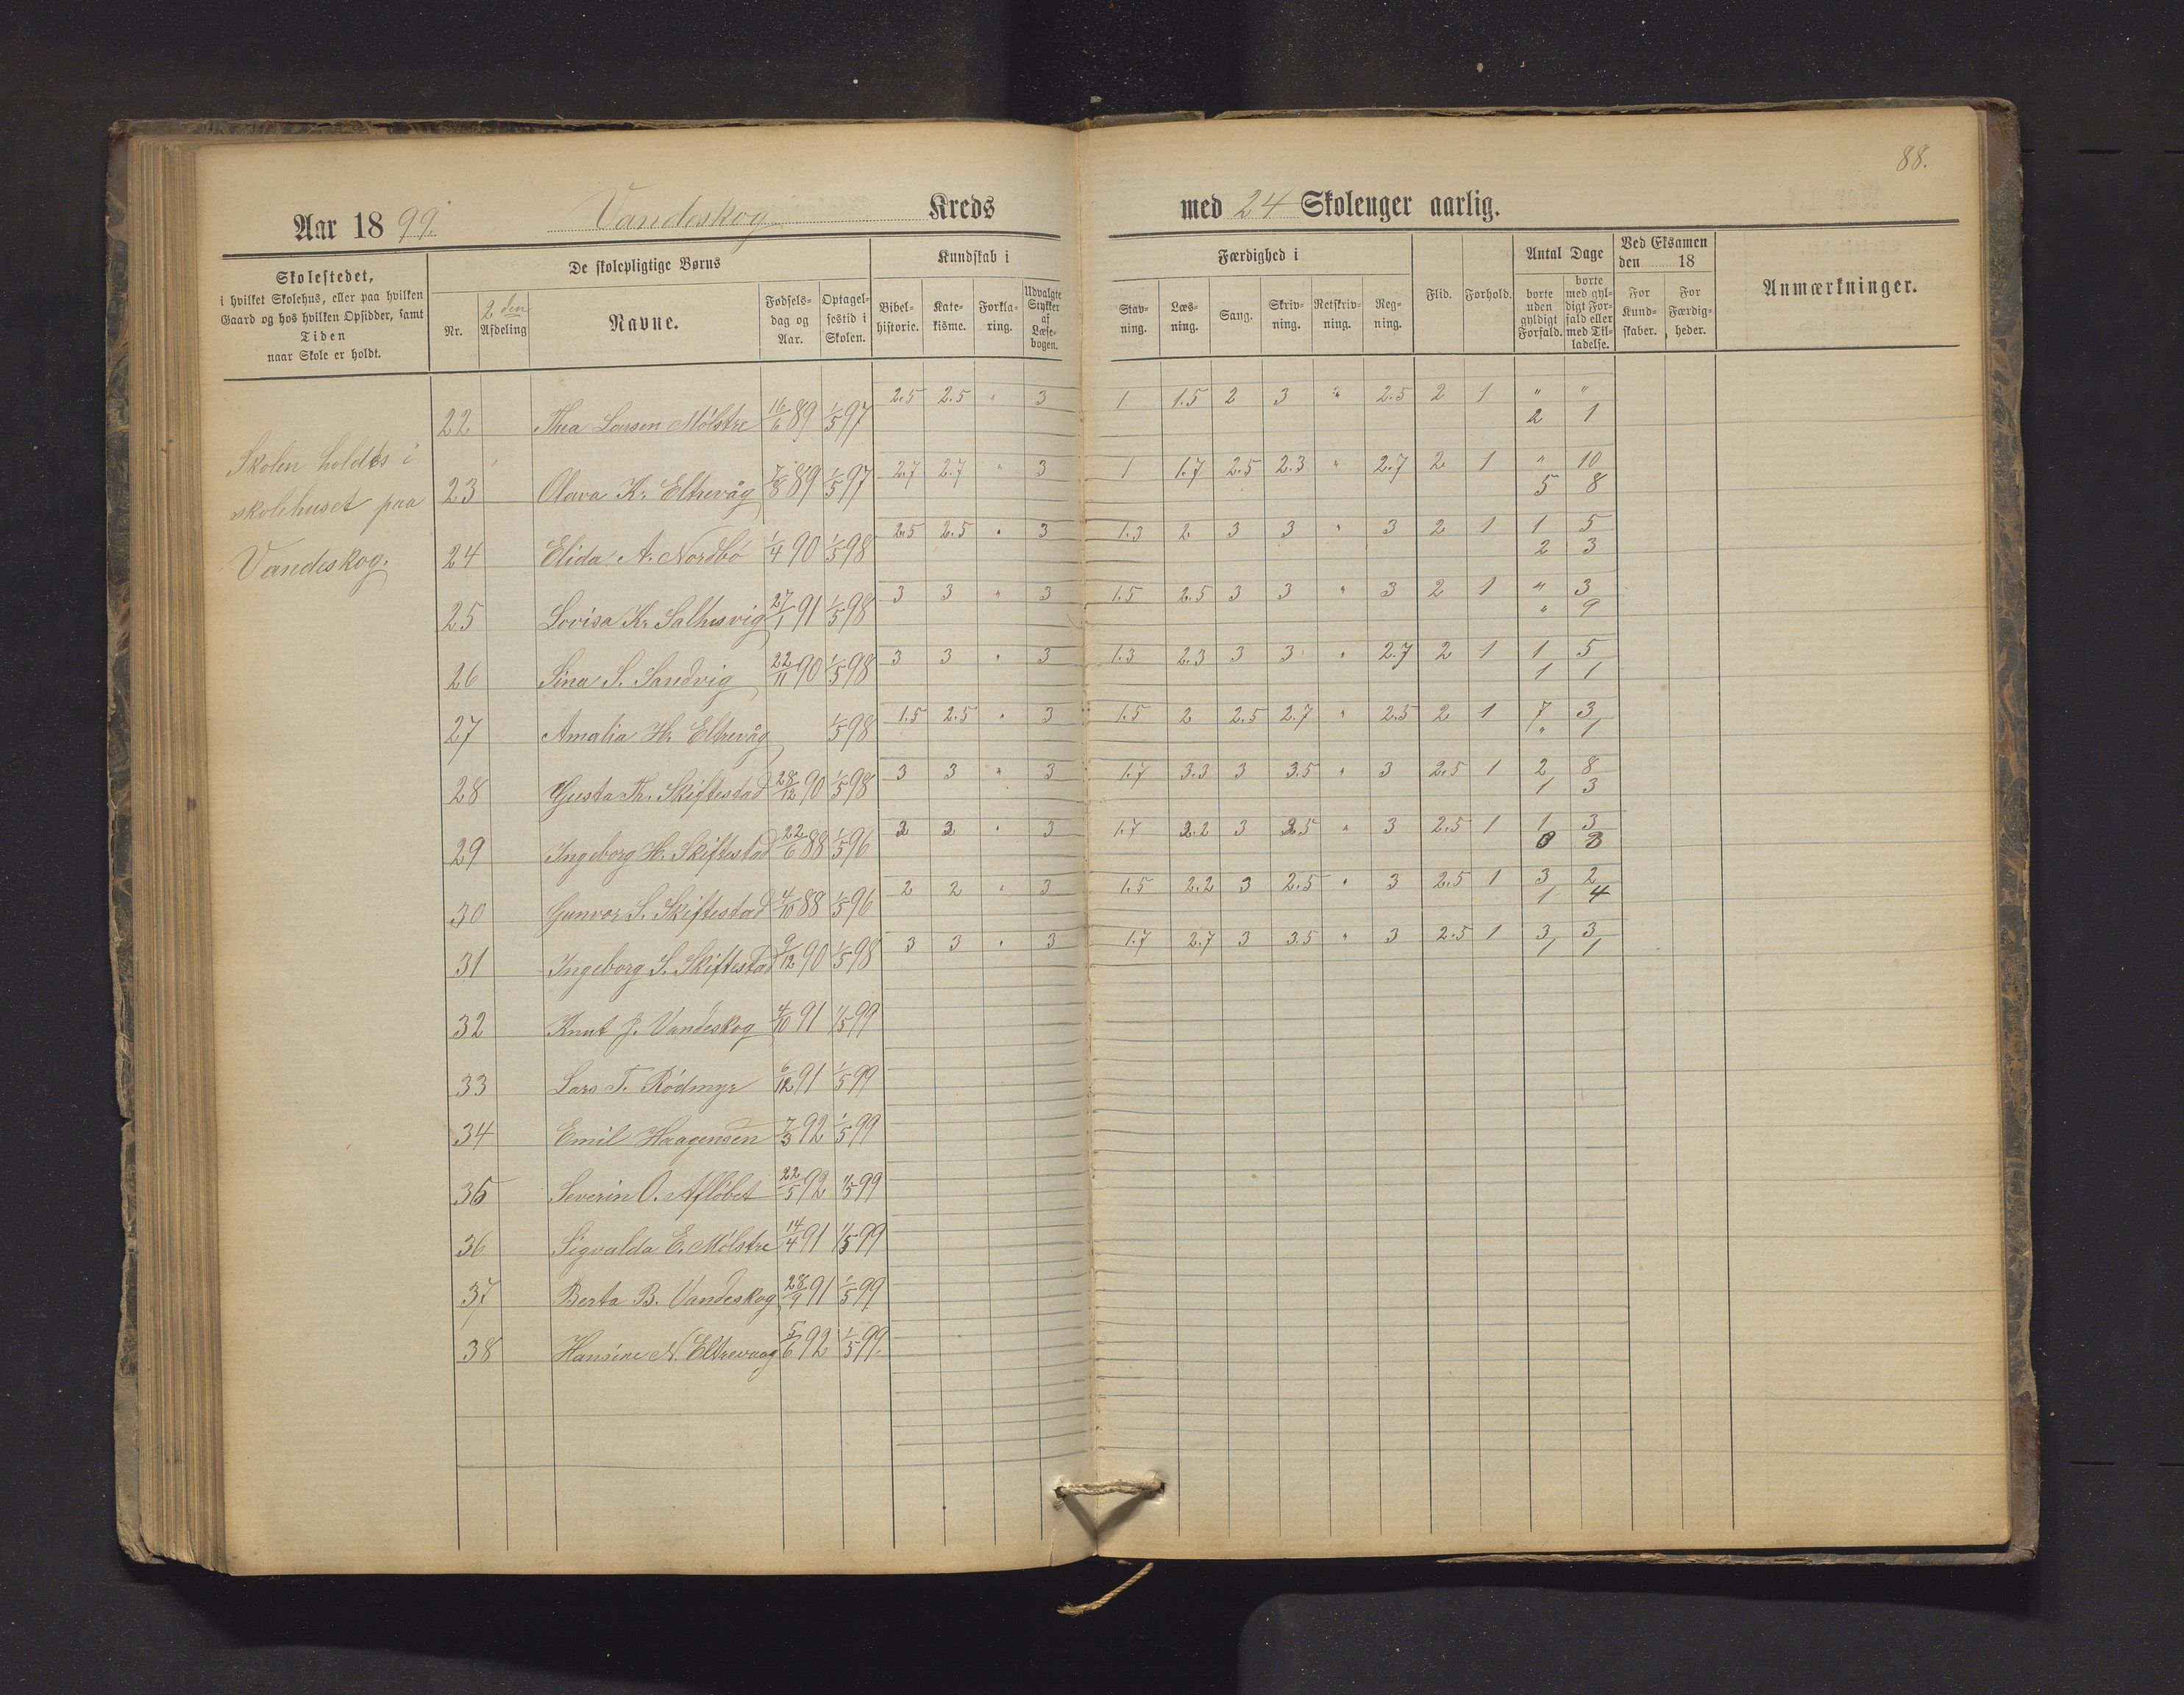 88.
Aar 1899. Vandeskog Kreds med 24 Skoleuger aarlig.
Skolestedet, i hvilket Skolehus, eller paa hvilken Gaard og hos hvilken Opsidder, samt Tiden naar Skole er holdt.
De skolepligtige Børns
Nr. 2den Afdeling Navne. Fødsels-dag og Aar. Optagel-sestid i Skolen.
Kundskab i
Bibel-historie. Kate-kisme. Forkla-ring. Udvalgte Stykker af Læse-bogen.
Færdighed i
Stav-ning. Læs-ning. Sang. Skriv-ning. Retskriv-ning. Reg-ning.
Flid. Forhold.
Antal Dage
borte uden gyldigt Forfald. borte med gyl-digt For-fald eller med Til-ladelse.
Ved Eksamen den 18
For Kund-skaber. For Færdig-heder.
Anmærkninger.
Skolen holdtes i
skolehuset paa
Vandeskog.
22 Thea Larsen Mølstre 16/6 89 1/5 97 2.5 2.5 " 3 1 1.5 2 3 " 2.5 2 1 " "
2 1
23 Olava K. Eltrevåg 7/8 89 1/5 97 2.7 2.7 " 3 1 1.7 2.5 2.3 " 2.7 2 1 " 10
5 8
24 Elida A. Nordbö 1/4 90 1/5 98 2.5 2.5 " 3 1.3 2 3 3 " 3 2 1 1 5
2 3
25 Lovisa K. Salhusvig 27/1 91 1/5 98 3 3 " 3 1.5 2.5 3 3 " 3 2 1 " 3
" 9
26 Sina S. Sandvig 22/11 90 1/5 98 3 3 " 3 1.3 2.3 3 3 " 2.7 2 1 1 5
1 1
27 Amalia H. Eltrevåg 1/5 98 1.5 2.5 " 3 1.5 2 2.5 2.7 " 2.5 2 1 7 3
" 1
28 Gusta Th. Skiftestad 28/12 90 1/5 98 3 3 " 3 1.7 3.3 3 3.5 " 3 2.5 1 2 8
1 3
29 Ingeborg H. Skiftestad 22/6 88 1/5 96 2 2 " 3 1.7 2.2 3 2.5 " 3 2.5 1 1 3
0 3
30 Gunvor S. Skiftestad 4/10 88 1/5 96 2 2 " 3 1.5 2.2 3 2.5 " 3 2.5 1 3 2
1 4
31 Ingeborg S. Skiftestad 9/12 90 1/5 98 3 3 " 3 1.7 2.7 3 3.5 " 3 2.5 1 3 3
1 1
32 Knut J. Vandeskog 4/10 91 1/5 99
33 Lars T. Rödmyr 6/12 91 1/5 99
34 Emil Haagensen 7/3 92 1/5 99
35 Severin O. Aflöbet 22/5 92 1/5 99
36 Sigvalda E. Mölstre 14/4 91 1/5 99
37 Berta B. Vandeskog 28/9 91 1/5 99
38 Hansine N. Eltrevaag 5/6 92 1/5 99.